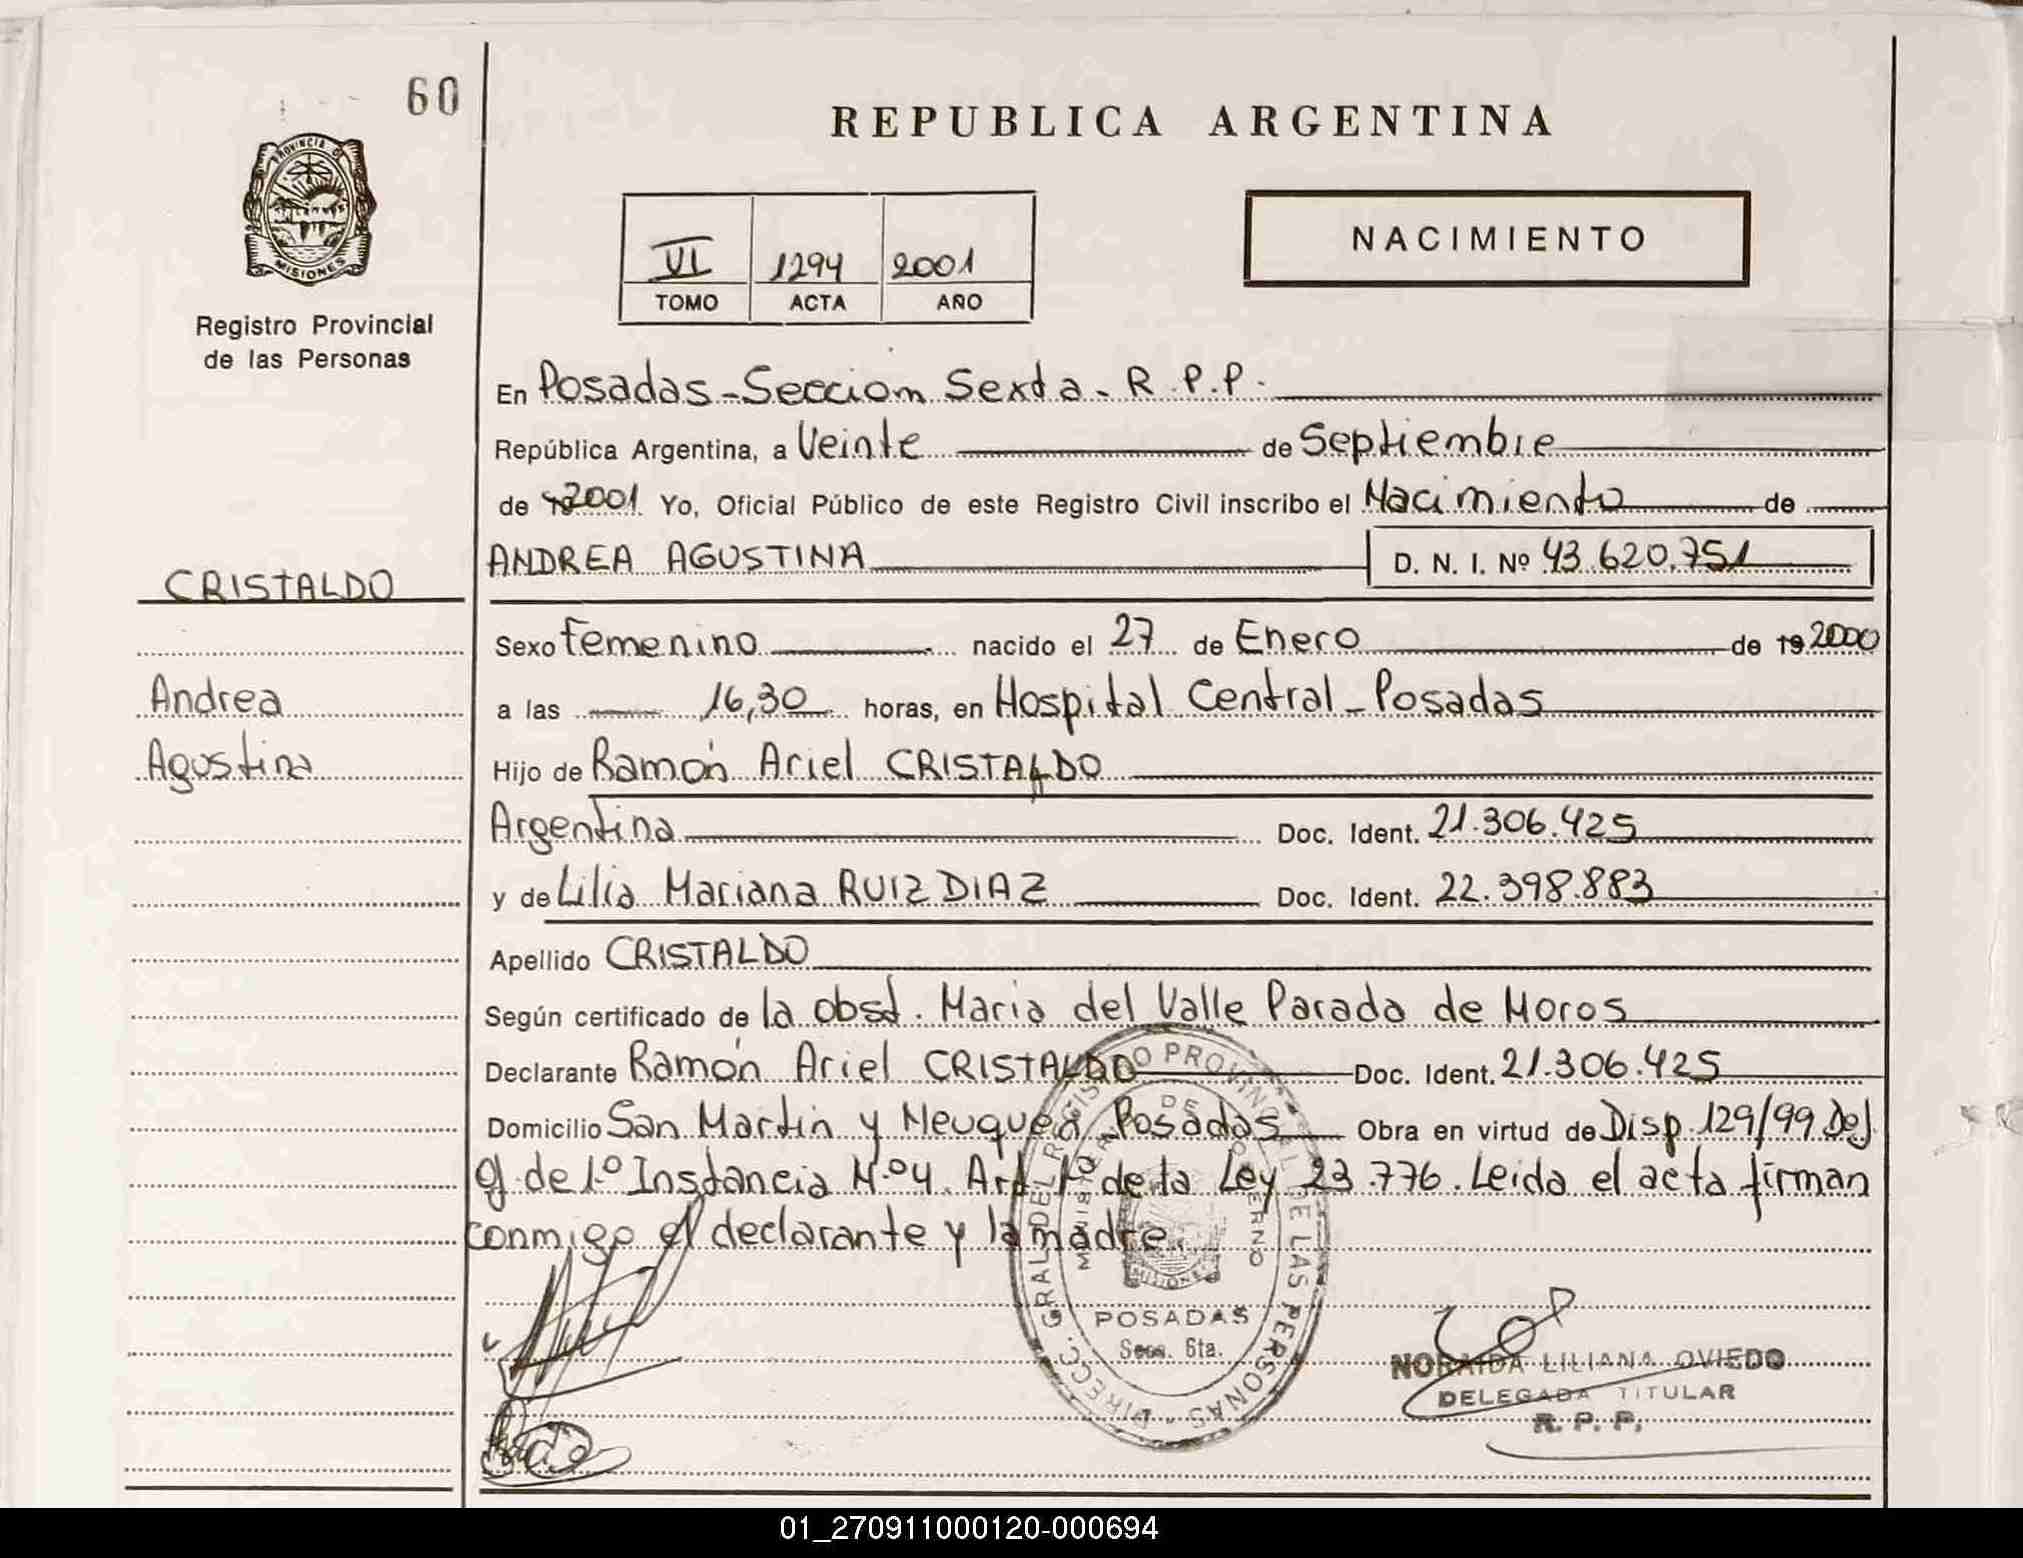 60
PROVINCIA DE
MISIONES
Registro Provincial
de las Personas
REPUBLICA ARGENTINA
VI 1294 2001
TOMO ACTA AÑO
NACIMIENTO
En Posadas - Seccion Sexta - R.P.P.
República Argentina, a Veinte de Septiembre
de 19 2001 Yo, Oficial Público de este Registro Civil inscribo el Nacimiento de
ANDREA AGUSTINA D. N. I. Nº 43.620.751
CRISTALDO
Andrea
Agustina
Sexo Femenino nacido el 27 de Enero de 19 2000
a las 16,30 horas, en Hospital Central - Posadas
Hijo de Ramón Ariel CRISTALDO
Argentina Doc. Ident. 21.306.425
y de Lilia Mariana RUIZ DIAZ Doc. Ident. 22.398.883
Apellido CRISTALDO
Según certificado de la obst. Maria del Valle Parada de Moros
Declarante Ramón Ariel CRISTALDO Doc. Ident. 21.306.425
Domicilio San Martin y Neuquen Posadas Obra en virtud de Disp. 129/99 Def
de 1º Instancia N.º 4. Art 1º de la Ley 23.776. Leida el acta firman
conmigo el declarante y la madre.
DIRECC. GRAL DEL REGISTRO PROVINCIAL DE LAS PERSONAS
MINISTERIO DE GOBIERNO
MISIONES
POSADAS
Secc. 6ta.
NORAIDA LILIANA OVIEDO
DELEGADA TITULAR
R. P. P.
01_270911000120-000694